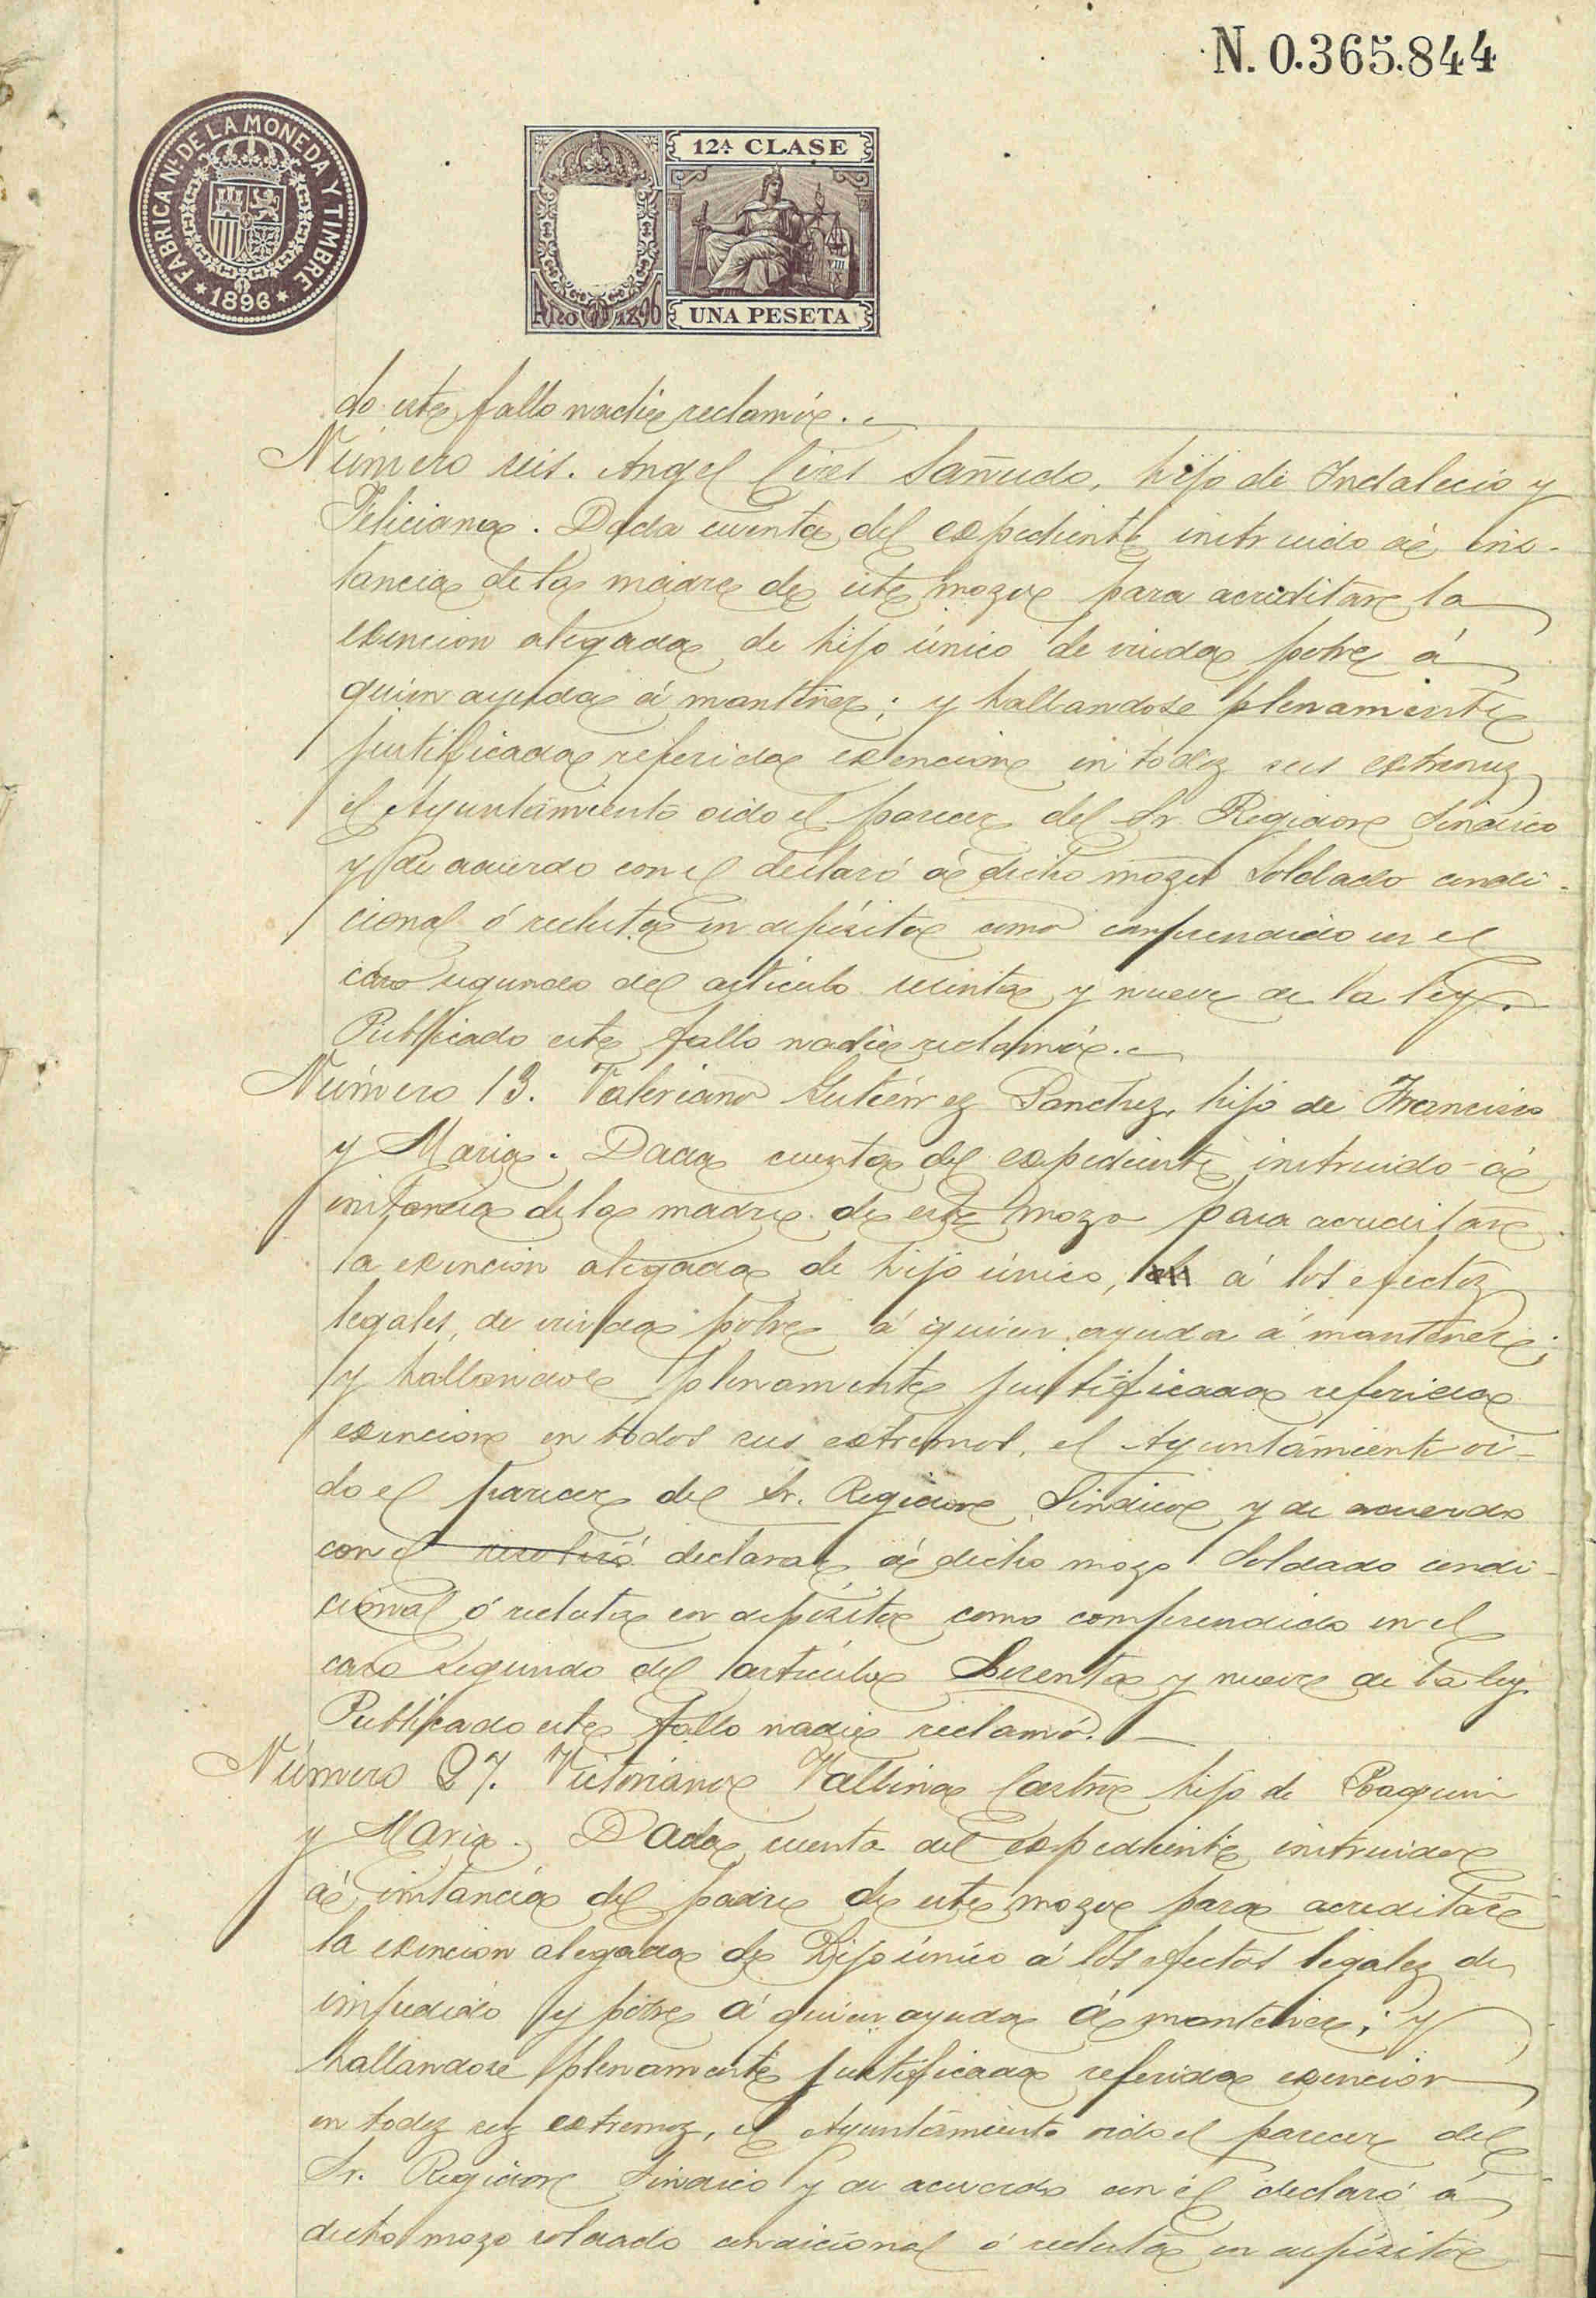 N. 0.365.844
FABRICA NL DE LA MONEDA Y TIMBRE
* 1896 *
12A CLASE
VIII
IX
UNA PESETA
AÑO 1896
do este fallo nadie reclamó.
Número seis. Angel Cires Sañudo, hijo de Indalecio y
Feliciana. Dada cuenta del expediente instruido á ins-
tancia de la madre de este mozo para acreditar la
exencion alegada de hijo único de viuda pobre á
quien ayuda á mantener; y hallandose plenamente
justificada referida exencion en todoz sus extremoz
el Ayuntamiento oido el parecer del Sr Regidor Sindico
y de acuerdo con el declaró á dicho mozo Soldado condi-
cional ó recluta en depósito como comprendido en el
caso segundo del artículo sesenta y nueve de la ley.
Publicado este fallo nadie reclamó.
Número 13. Valeriano Gutiérrez Sanchez, hijo de Francisco
y Maria. Dada cuenta del expediente instruido á
instancia de la madre de este mozo para acreditar
la exencion alegada de hijo único, á los efectoz
legales, de viuda pobre á quien ayuda á mantener;
y hallandose plenamente justificada referida
exencion en todos sus extremos, el Ayuntamiento oi-
do el parecer del Sr. Regidor Sindico y de acuerdo
con el resolvió declarar á dicho mozo Soldado condi-
cional ó recluta en depósito como comprendido en el
caso segundo del artículo Sesenta y nueve de la ley.
Publicado este fallo nadie reclamó.
Número 27. Victoriano Vallina Castro hijo de Joaquin
y Maria. Dada cuenta del expediente instruido
á instancia del padre de este mozo para acreditar
la exencion alegada de hijo único á los efectos legalez de
impedido y pobre á quien ayuda á mantener; y
hallandose plenamente justificada referida exencion
en todoz suz extremoz, el Ayuntamiento oido el parecer del
Sr. Regidor Sindico y de acuerdo con él declaró á
dicho mozo soldado condicional ó recluta en depósito